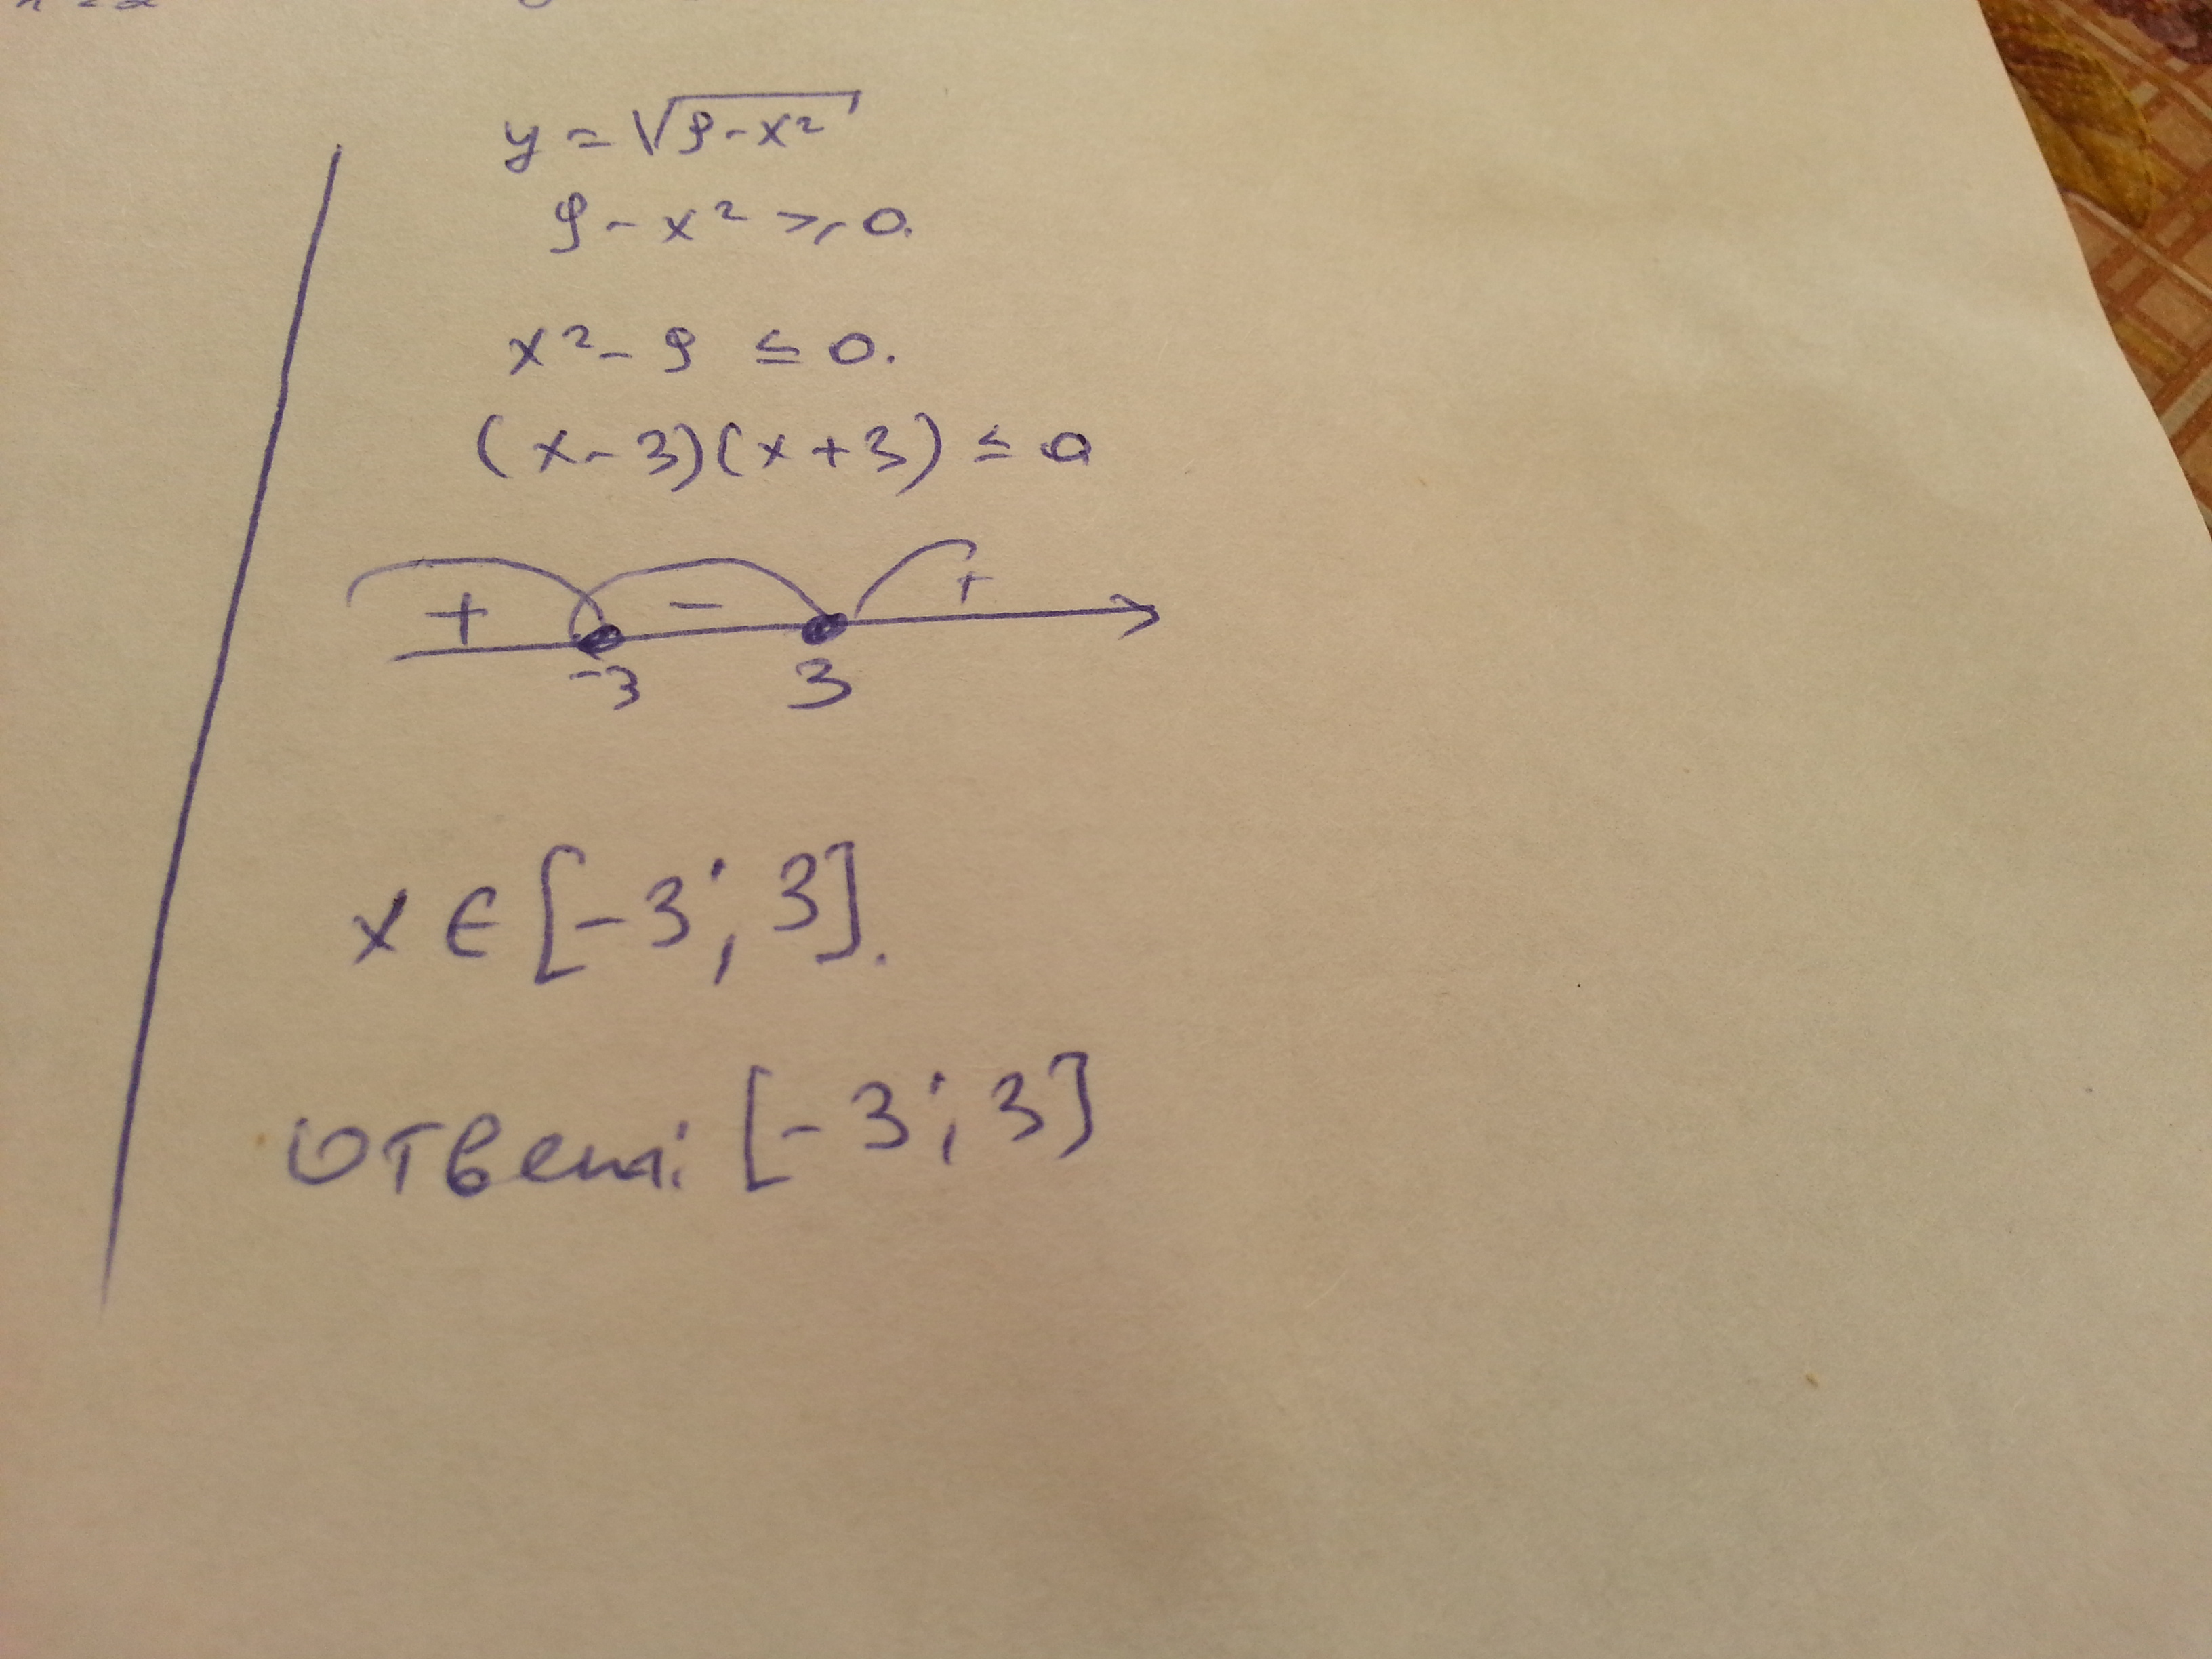 y = √9-x²
9 - x² ≥ 0.
x² - 9 ≤ 0.
(x - 3)(x + 3) ≤ 0
+ - +
-3 3
x ∈ [-3; 3].
Ответ: [-3; 3]